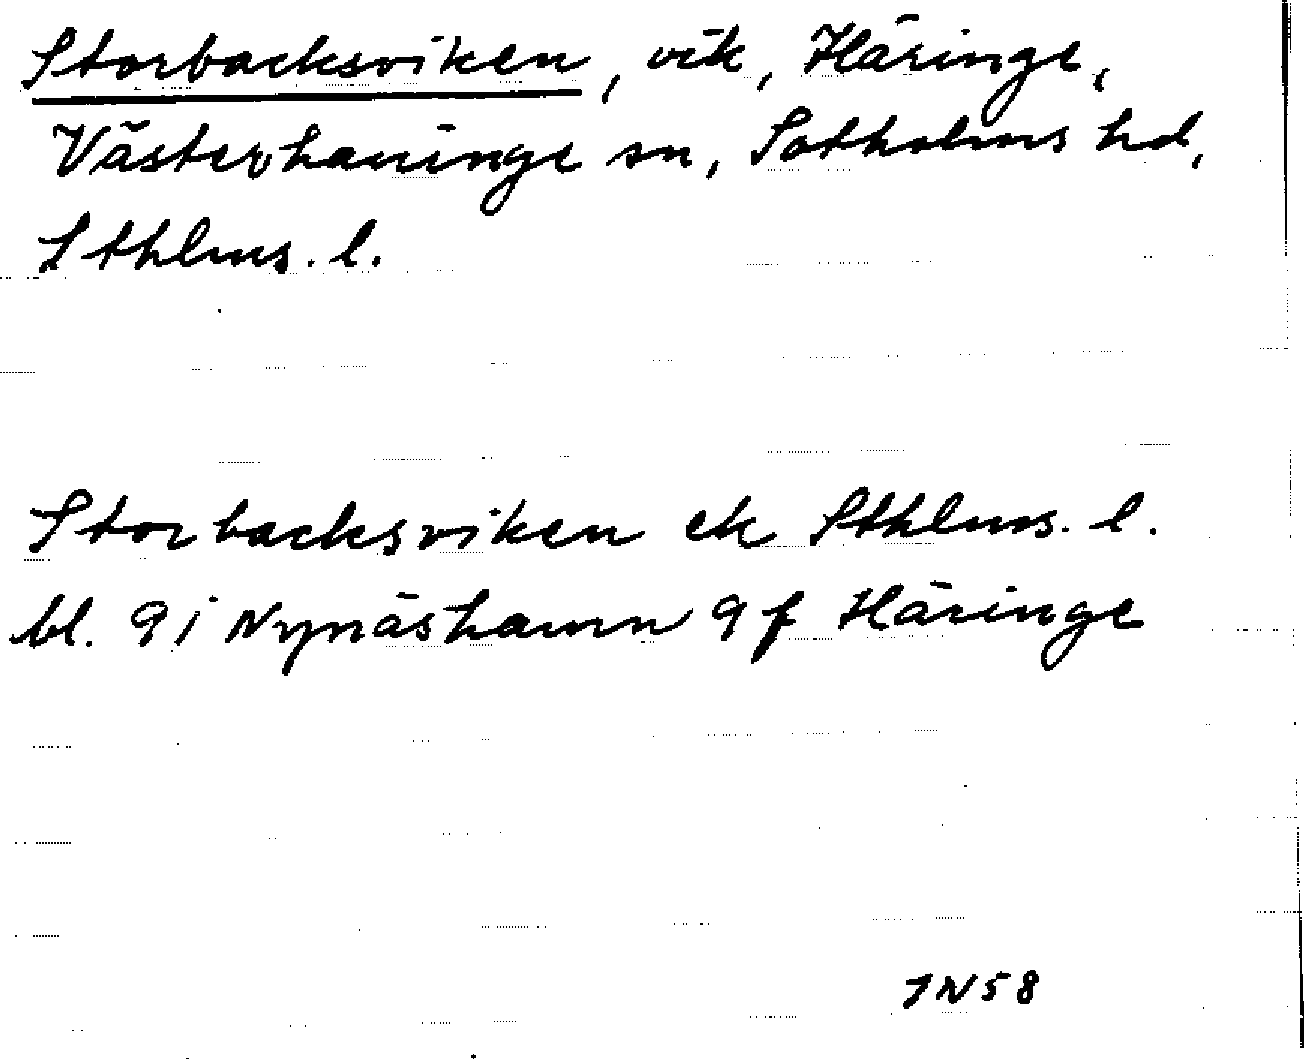 Storbacksviken, vik, Häringe,
Västerhaninge sn, Sotholms hd,
Sthlms. l.
Storbacksviken ek Sthlms. l.
bl. 9 i Nynäshamn 9 f Häringe
JN58